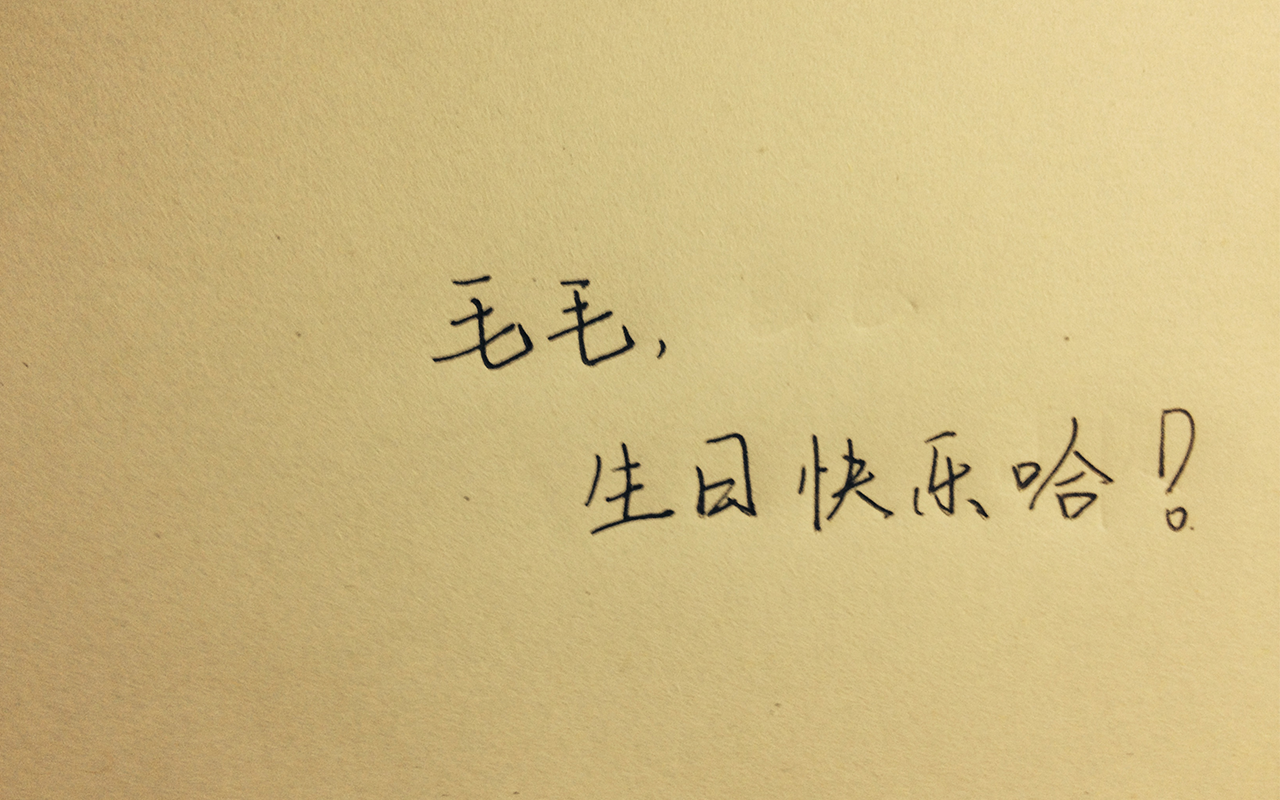 毛毛，
生日快乐哈！